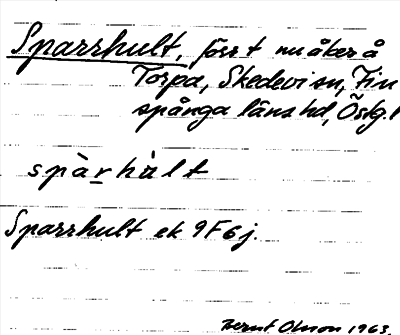 Sparrhult, förr t nu åker å
Torpa, Skedevi sn, Fin
spånga läns hd, Östg. l
spàr̲hùlt
Sparrhult ek 9F6j.
Bernt Olsson 1963.